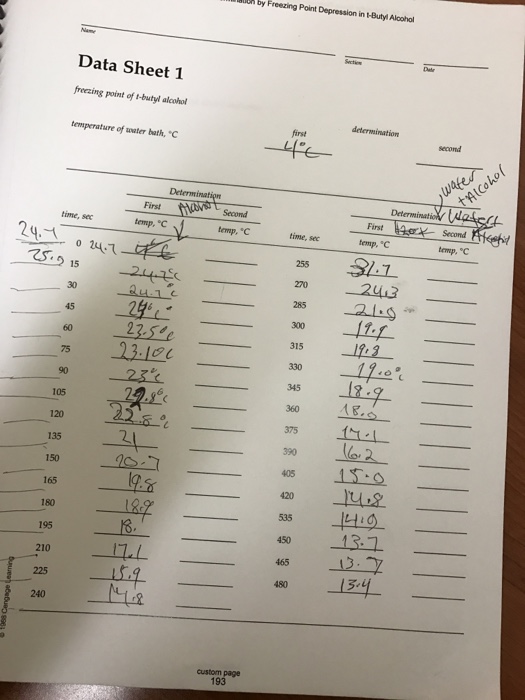 by Freezing Point Depression in t-Butyl Alcohol
Name
Section
Date
Data Sheet 1
freezing point of t-butyl alcohol
temperature of water bath, °C
first
determination
second
4°C
water
+ Alcohol
Determination
First Second
time, sec temp, °C temp, °C
Determination Water
First Second
time, sec temp, °C temp, °C
24.7
25.9
0 24.7
15 24.7°C
30 24.7°C
45
60 23.5°C
75 23.10C
90 23°C
105
120 22.8°C
135 21
150 20.7
165 19.8
180 18.9
195 18.
210 17.1
225 15.9
240 14.8
255 31.7
270 24.3
285 21.9
300 19.9
315 19.3
330 19.0°C
345 18.9
360 18.0
375 17.1
390 16.2
405 15.0
420 14.8
535 14.9
450 13.7
465 13.7
480 13.4
© 1988 Cengage Learning
custom page
193